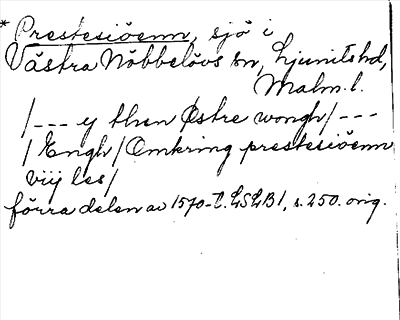 * Prestesiöenn, sjö i
Västra Nöbbelövs sn, Ljunitshd,
Malm.l.
/--- y then Østre wongh/---
/Engh/Omkring prestesiöenn
viij les/
förra delen av 1570-t. LSLB1, s.250. orig.